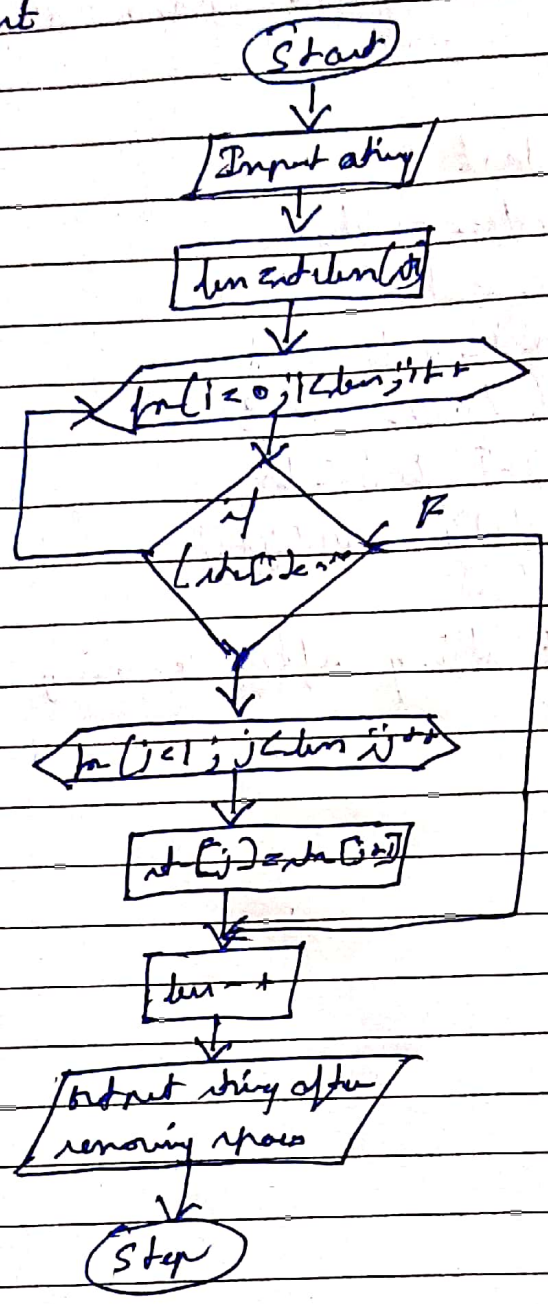 Start
Input string
len = strlen(str)
for(i = 0; i<len; i++
if
(str[i] =
F
for (j=i; j<len; j++
str[j] = str[j+1]
len--
Output string after
removing spaces
Stop